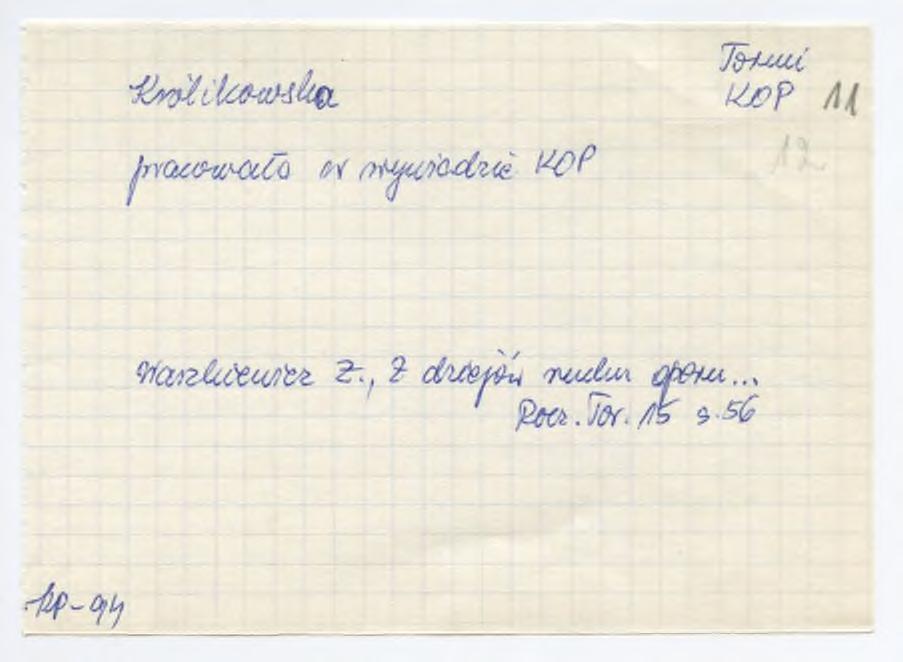 Toruń
Królikowska KOP 11
12
pracowała w wywiadzie KOP
Waszkiewicz Z., Z dziejów ruchu oporu...
Rocz. Tor. 15 s. 56
KP-94